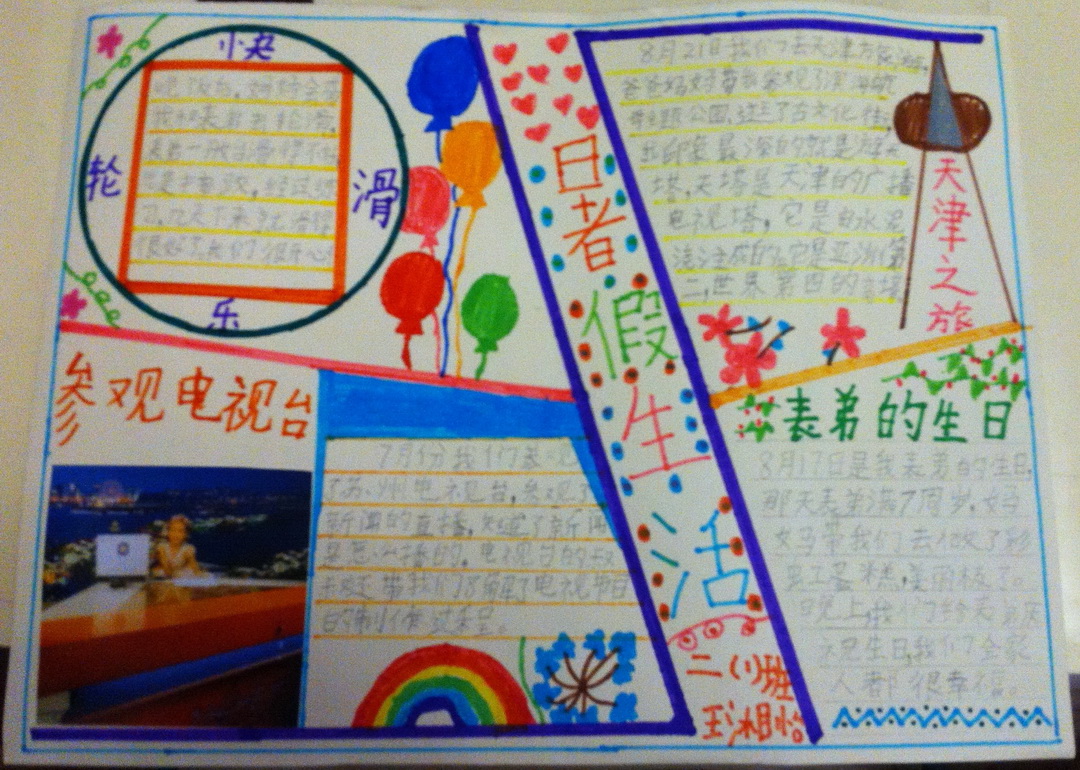 快
乐
轮
滑
我和表弟去轮滑,
很好了,我们很开心
参观电视台
7月份我们参观
了苏州电视台,参观了
新闻的直播,知道了新闻
是怎么播的。电视台的叔
叔还带我们了解了电视节目
的制作过程。
暑
假
生
活
二(1)班
8月21日我们去天津旅游,
爸爸妈妈带我参观了滨海航
母主题公园,逛了古文化街,
印象最深的就是
塔,天塔是天津的广播
电视塔,它是由水泥
浇注成的。它是亚洲第
二,世界第四的高塔
天津之旅
表弟的生日
8月17日是我表弟的生日,
那天表弟满7周岁,妈
妈带我们去做了彩
蛋糕,美丽极了。
晚上,我们给表弟庆
祝生日,我们全家
人都很幸福。